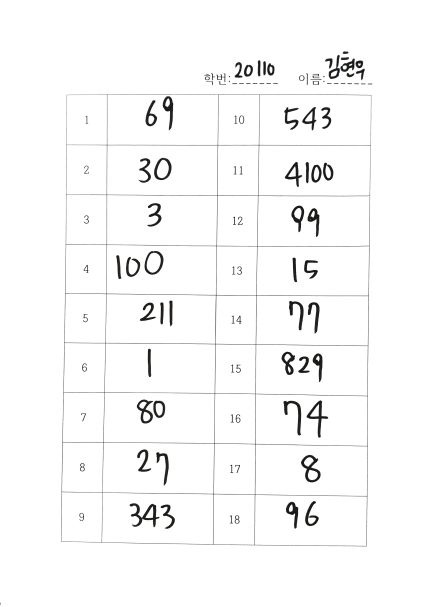 학번: 20110 이름: 김현우
1 69 10 543
2 30 11 4100
3 3 12 99
4 100 13 15
5 211 14 77
6 1 15 829
7 80 16 74
8 27 17 8
9 343 18 96